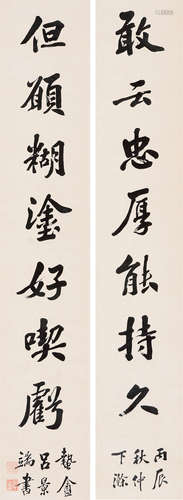 敢云忠厚能持久
丙辰
秋仲
下滌
但願糊塗好喫虧
蟄盦
呂景
端書